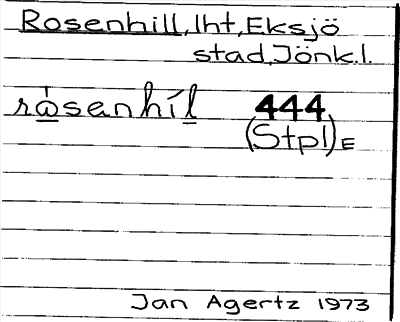 Rosenhill, lht, Eksjö
stad, Jönk. l.
rὼsenhíl 444
(Stpl) E
Jan Agertz 1973